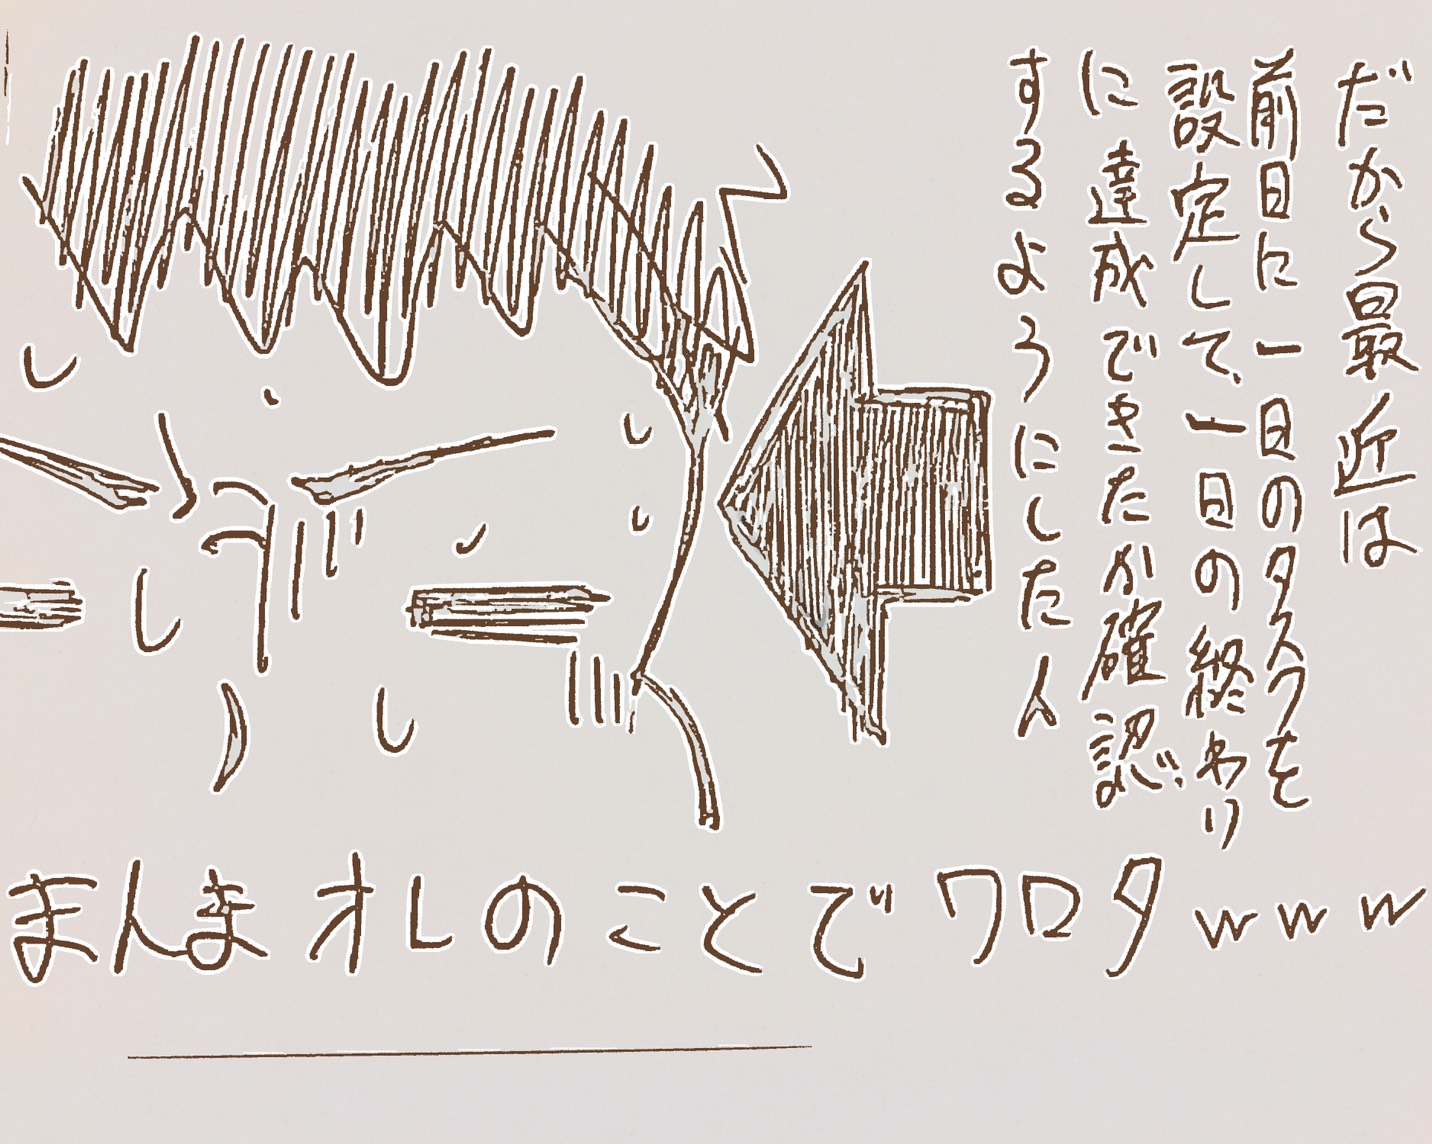 だから最近は
前日に一日のタスクを
設定して、一日の終わり
に達成できたか確認
するようにした人
まんまオレのことでワロタwww